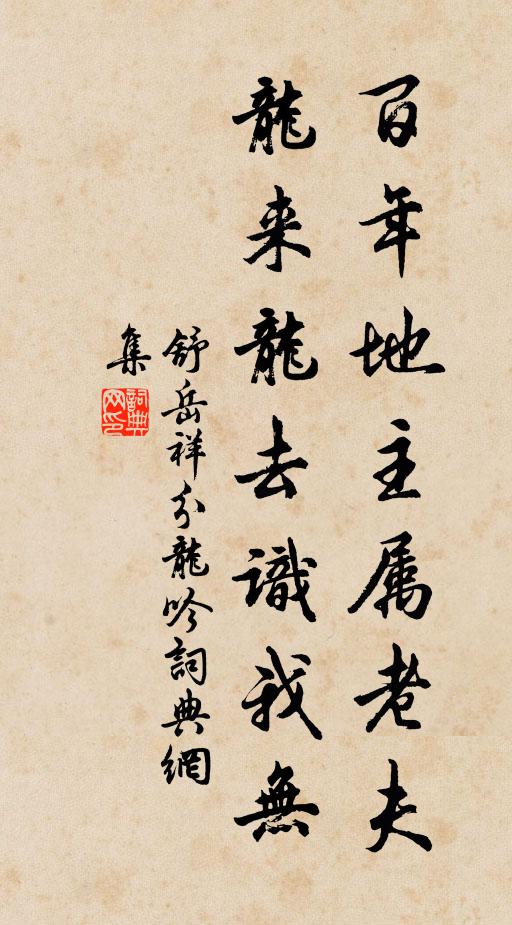 百年地主属老夫
龍来龍去識我無
舒岳祥分龍吟詞典網
集
詞典網印